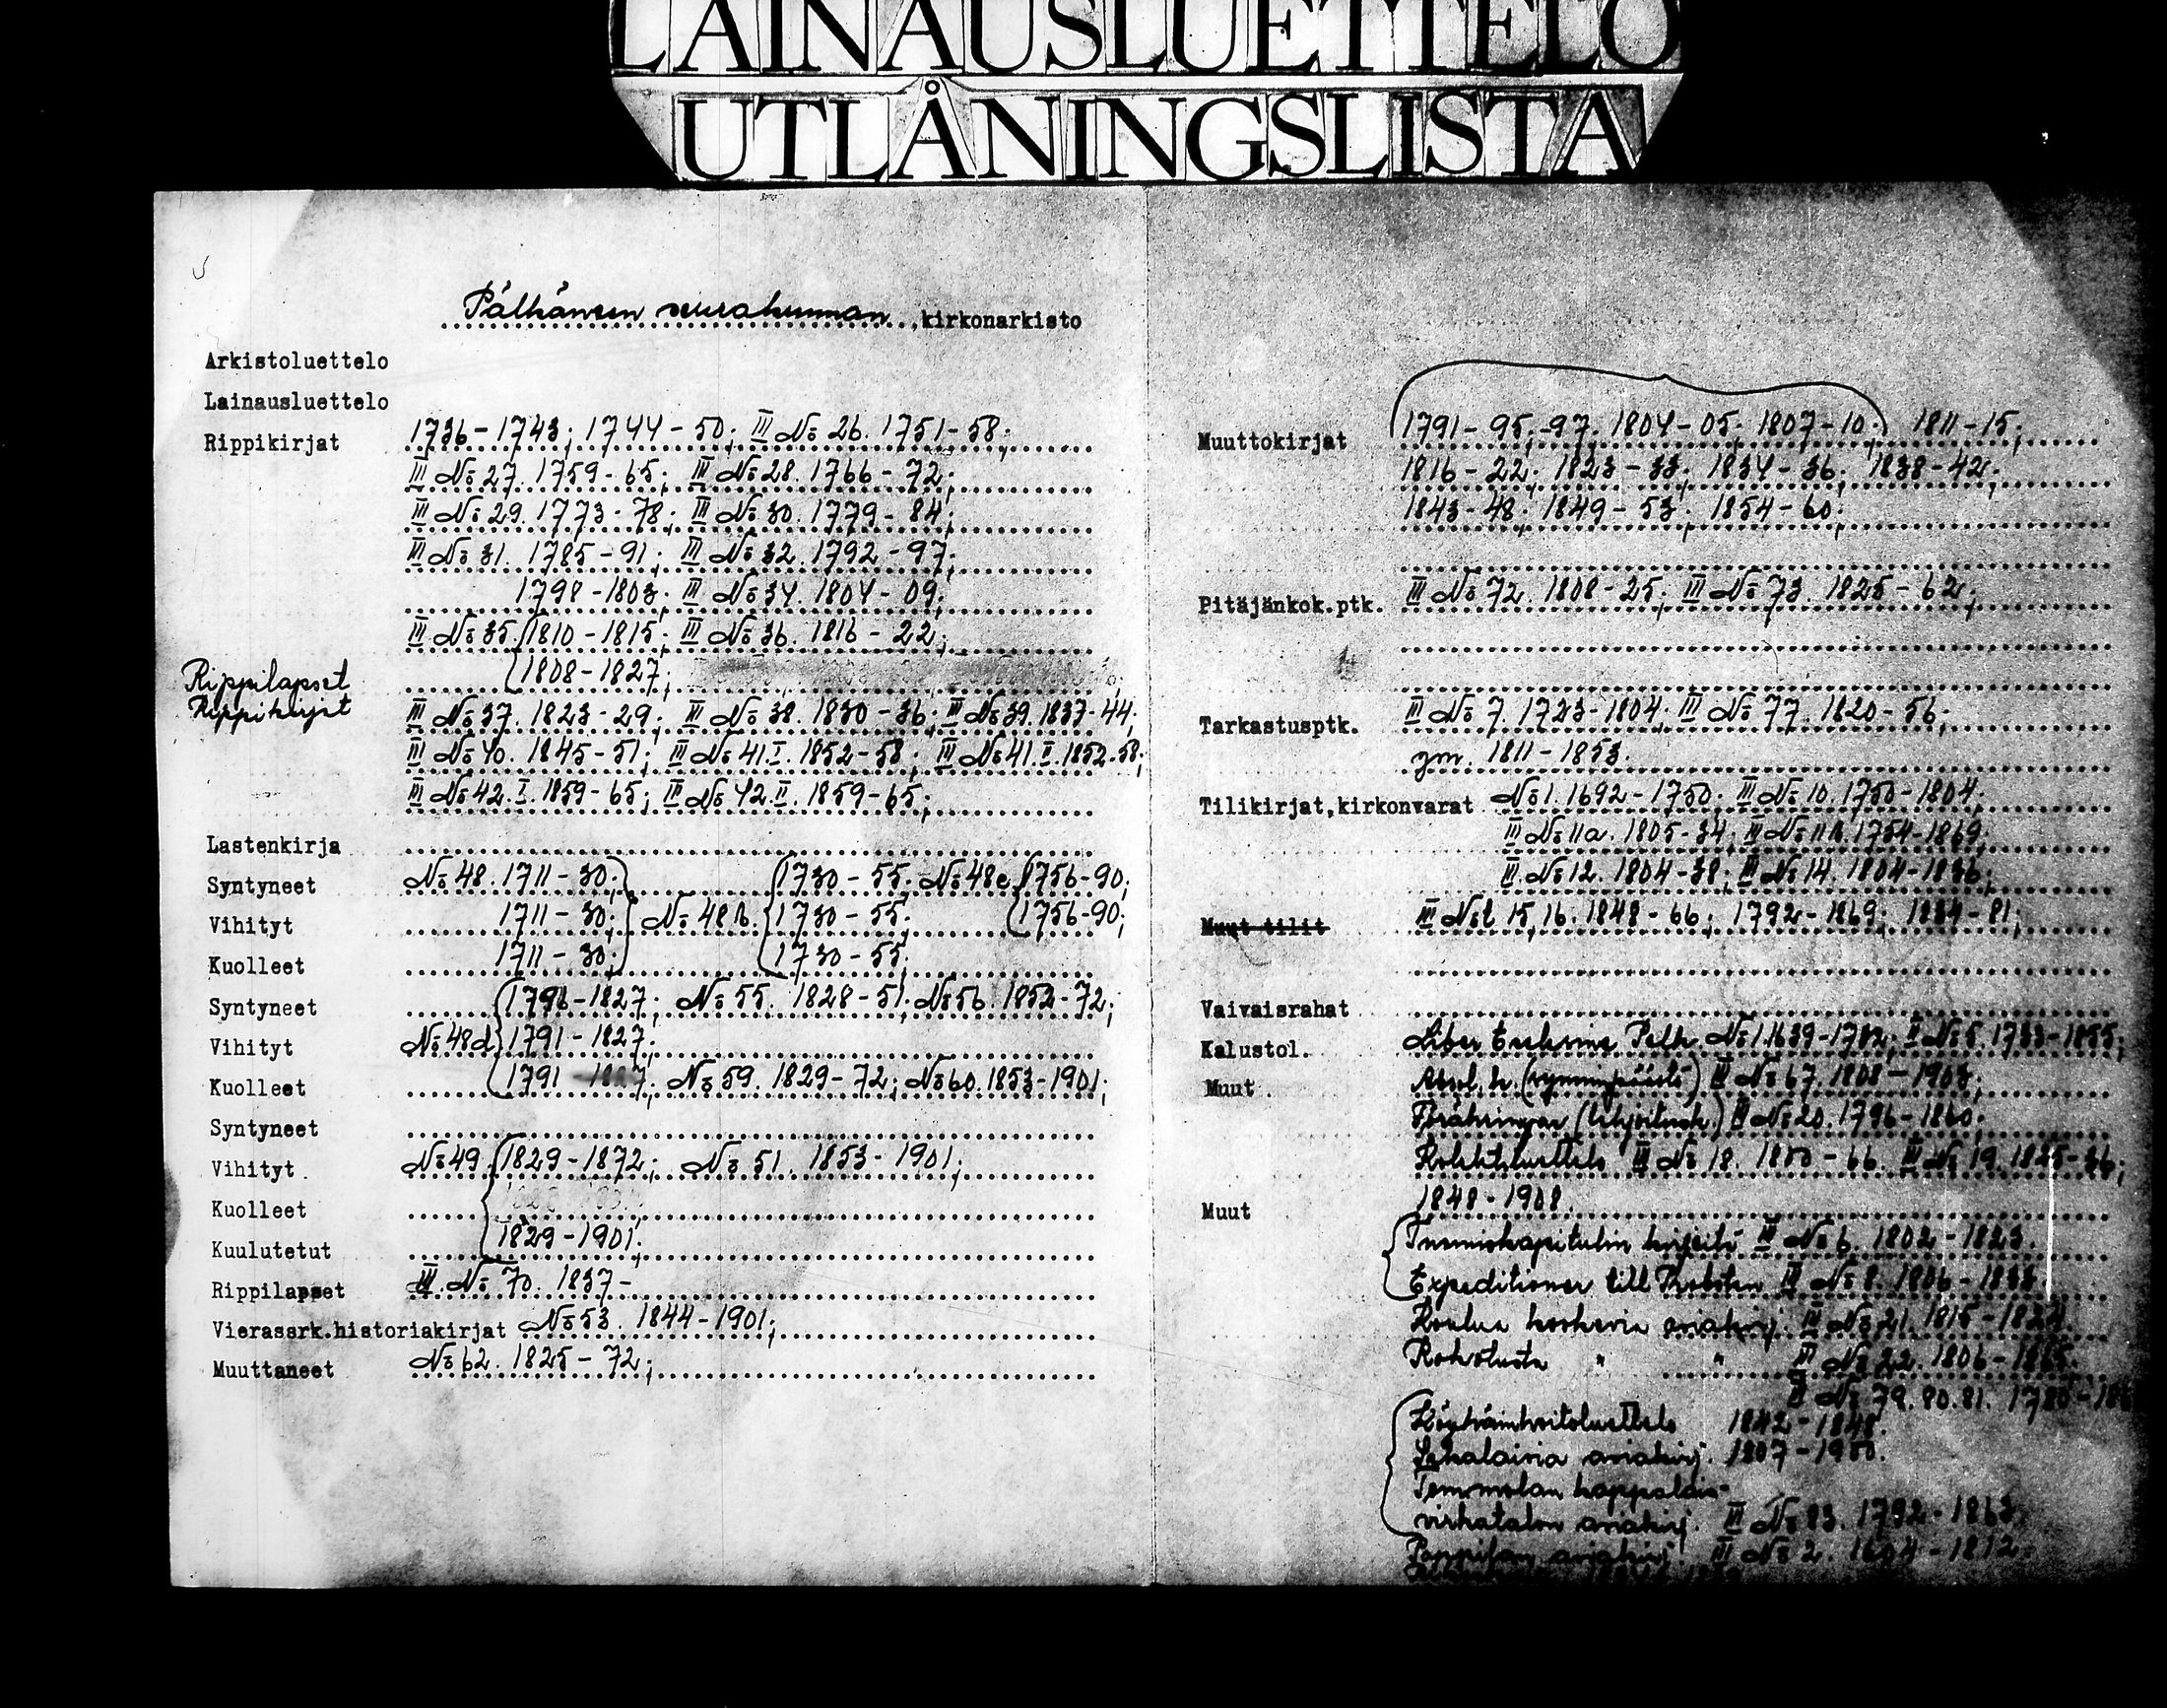 LAINAUSLUETTELO
UTLÅNINGSLISTA
Pälkäneen seurakunnan, kirkonarkisto
Arkistoluettelo
Lainausluettelo
Rippikirjat 1736-1743; 1744-50; III No 26. 1751-58;
III No 27. 1759-65; III No 28. 1766-72;
III No 29. 1773-78; III No 30. 1779-84;
III No 31. 1785-91; III No 32. 1792-97;
1798-1803; III No 34. 1804-09;
III No 35. 1810-1815; III No 36. 1816-22;
Rippilapset 1808-1827;
Rippikirjat III No 37. 1823-29; III No 38. 1830-36; III No 39. 1837-44;
III No 40. 1845-51; III No 41.I. 1852-58; III No 41.II. 1852-58;
III No 42.I. 1859-65; III No 42.II. 1859-65;
Lastenkirja
Syntyneet No 48. 1711-30; 1730-55; No 48c 1756-90;
Vihityt 1711-30; No 48b. 1730-55; 1756-90;
Kuolleet 1711-30; 1730-55;
Syntyneet 1796-1827; No 55. 1828-51; No 56. 1852-72;
Vihityt No 48d 1791-1827;
Kuolleet 1791-1827; No 59. 1829-72; No 60. 1853-1901;
Syntyneet
Vihityt No 49. 1829-1872; No 51. 1853-1901;
Kuolleet
Kuulutetut 1829-1901;
Rippilapset III. No 70. 1837-
Vierassrk.historiakirjat No 53. 1844-1901;
Muuttaneet No 62. 1825-72;
Muuttokirjat 1791-95; -97. 1804-05; 1807-10; 1811-15;
1816-22; 1823-33; 1834-36; 1838-42;
1843-48; 1849-53; 1854-60;
Pitäjänkok.ptk. III No 72. 1808-25; III No 73. 1825-62;
Tarkastusptk. III No 7. 1723-1804; III No 77. 1820-56;
ym. 1811-1853.
Tilikirjat,kirkonvarat No 1. 1692-1750; III No 10. 1750-1804.
III No 11a. 1805-34; III No 11b. 1754-1869;
III No 12. 1804-38; III No 14. 1804-1836;
Muut tilit III No 15,16. 1848-66; 1792-1869; 1834-81;
Vaivaisrahat
Kalustol. Liber Pelk. No 1. 1639-1782; No 5. 1733-1855;
Muut. Absol. k. (synninpäästö) III No 67. 1808-1908;
(lahjoitusk.) III No 20. 1796-1860;
Kolehtiluettelo III No 18. 1800-66. III No 19. 1825-36;
Muut 1848-1908.
Tuomiokapitulin kirjeitä III No 6. 1802-1823.
Expeditioner till Probsten III No 8. 1806-1833.
Koulua koskevia asiakirj. III No 21. 1815-1824.
Rokotusta " " III No 22. 1806-1865.
III No 79. 80. 81. 1780-
Köyhäinhoitoluettelo 1842-1848.
Sekalaisia asiakirj. 1807-1900.
Tommolan kappalais-
virkatalon asiakirj. III No 83. 1792-1863.
Pappilan asiakirj. III No 2. 1604-1812.